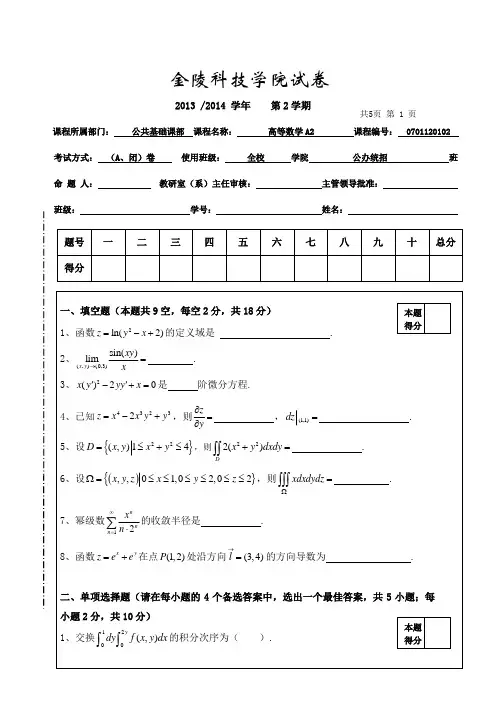 金陵科技学院试卷
2013 /2014 学年 第2学期
共5页 第 1 页
课程所属部门: 公共基础课部 课程名称: 高等数学A2 课程编号: 0701120102
考试方式: (A、闭)卷 使用班级: 全校 学院 公办统招 班
命 题 人: 教研室(系)主任审核: 主管领导批准:
班级: 学号: 姓名:
题号 一 二 三 四 五 六 七 八 九 十 总分
得分
一、填空题(本题共9空,每空2分,共18分)
本题得分
1、函数 z = ln(y² − x + 2) 的定义域是 .
2、 lim_{(x,y)→(0,3)} sin(xy)/x = .
3、x(y′)² − 2yy′ + x = 0 是 阶微分方程.
4、已知 z = x⁴ − 2x³y² + y³,则 ∂z/∂y = ,dz|_(1,1) = .
5、设 D = {(x, y)|1 ≤ x² + y² ≤ 4},则 ∬_D 2(x² + y²)dxdy = .
6、设 Ω = {(x, y, z)|0 ≤ x ≤ 1, 0 ≤ y ≤ 2, 0 ≤ z ≤ 2},则 ∭_Ω xdxdydz = .
7、幂级数 ∑_{n=1}^{∞} xⁿ/(n·2ⁿ) 的收敛半径是 .
8、函数 z = eˣ + eʸ 在点 P(1,2) 处沿方向 l⃗ = (3,4) 的方向导数为 .
二、单项选择题(请在每小题的4个备选答案中,选出一个最佳答案,共5小题;每
小题2分,共10分)
本题得分
1、交换 ∫₀¹ dy ∫₀^{2y} f(x, y)dx 的积分次序为( ).